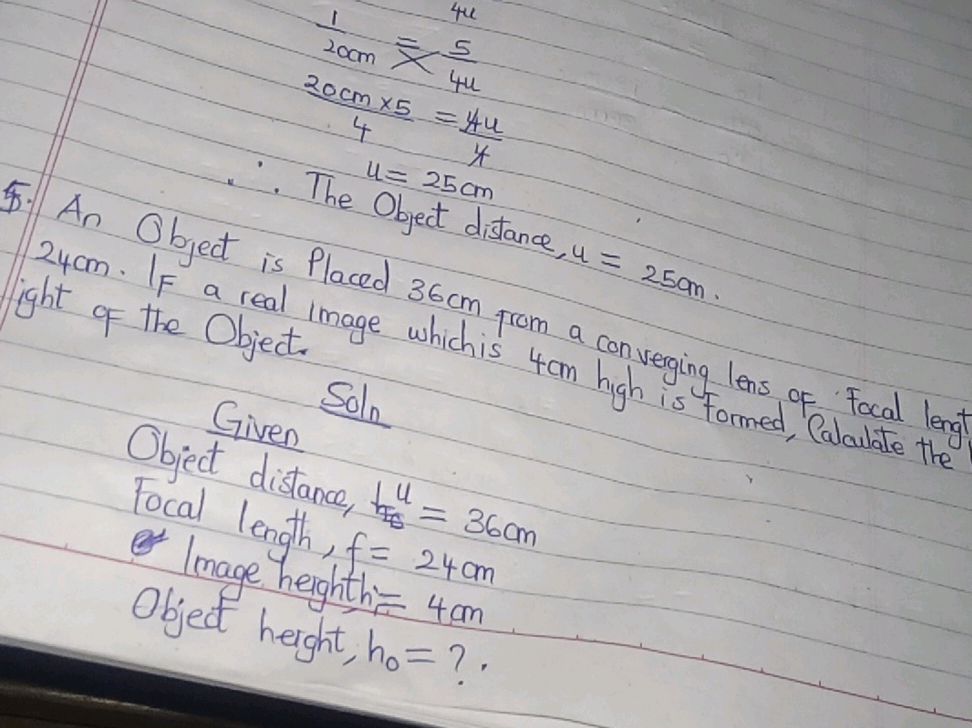 4u
1 = 5
20cm 4u
20cm x5 = 4u
4 4
u= 25cm
∴ The Object distance, u = 25cm.
5. An Object is Placed 36cm from a converging lens of Focal lengt
24cm. IF a real image which is 4cm high is formed, Calculate the h
ight of the Object.
Soln
Given
Object distance, u = 36cm
Focal length, f= 24cm
Image height hi= 4cm
Object height, ho= ?.